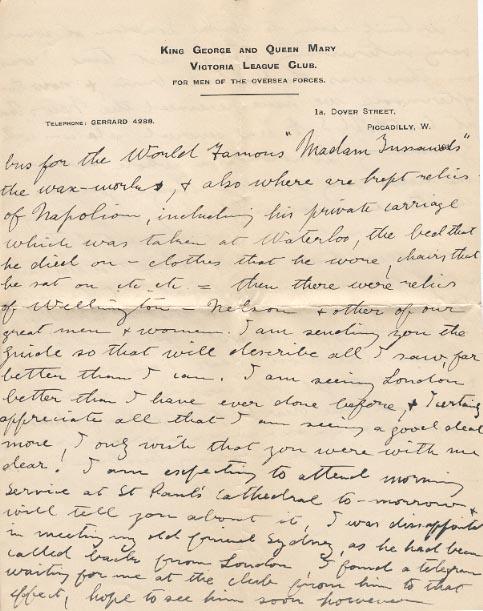 KING GEORGE AND QUEEN MARY
VICTORIA LEAGUE CLUB.
FOR MEN OF THE OVERSEA FORCES.
TELEPHONE: GERRARD 4988.
1A. DOVER STREET,
PICCADILLY, W.
bus for the World Famous "Madam Tussauds"
the wax-works, & also where are kept relics
of Napolion, including his private carriage
which was taken at Waterloo, the bed that
he died on – clothes that he wore, chairs that
he sat on etc etc = then there were relics
of Wellington – Nelson & other of our
great men & women. I am sending you the
guide so that will describe all I saw, far
better than I can. I am seeing London
better than I have ever done before, & I
appreciate all that I am seeing a good deal
more, I only wish that you were with me
dear. I am expecting to attend morning
Service at St Paul's Cathedral to-morrow &
will tell you about it, I was dissapointed
in meeting my old friend Sydney, as he had been
called back from London, I found a telegram
waiting for me at the club from him to that
effect, hope to see him soon however